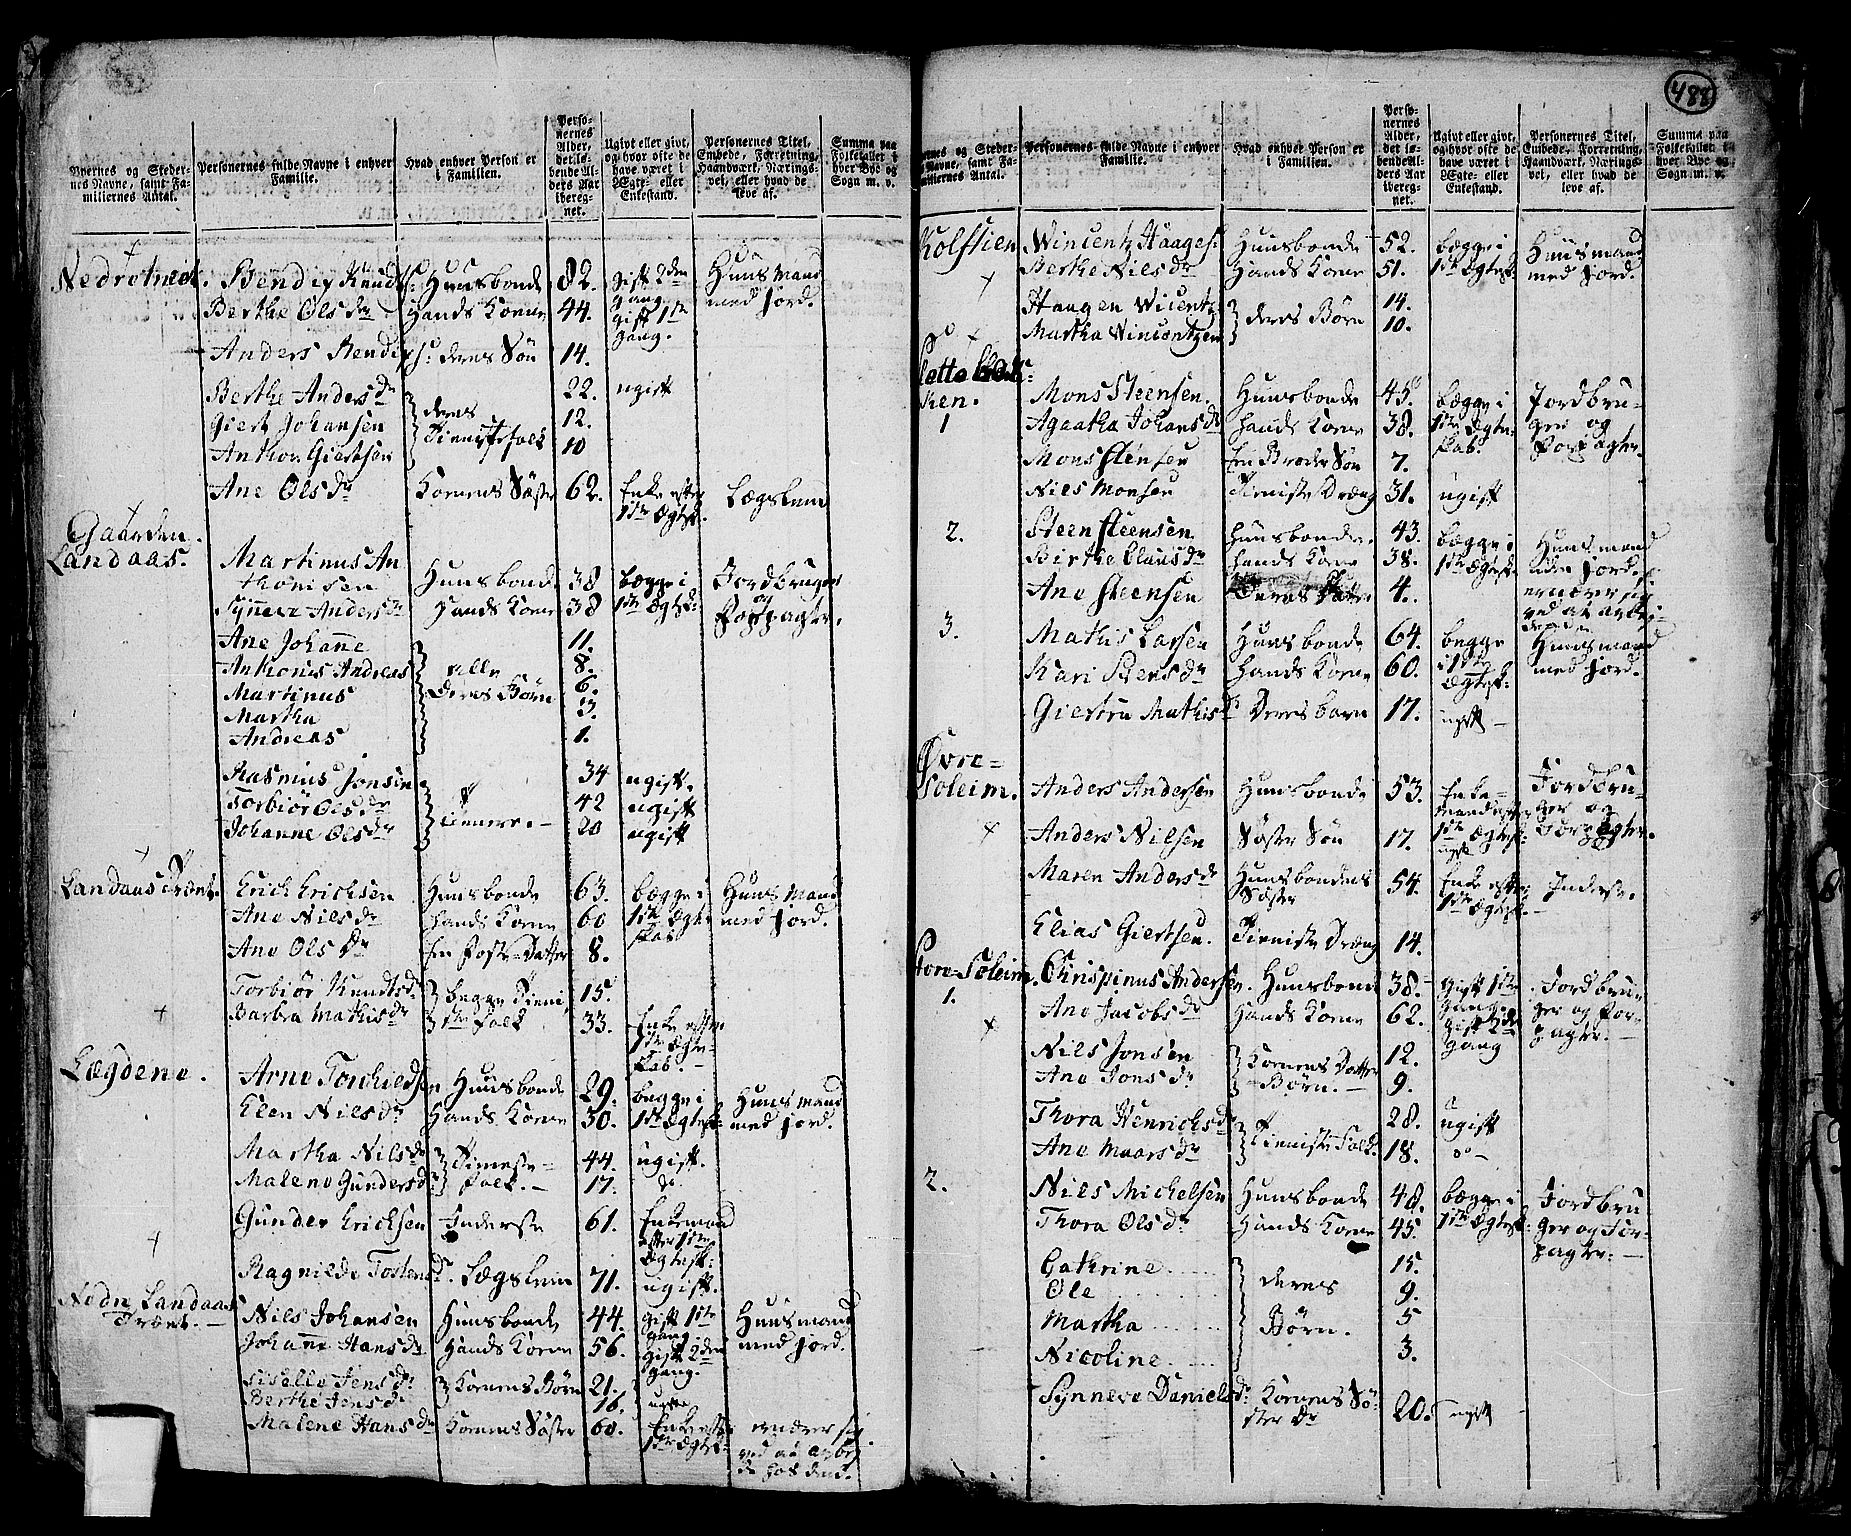 488
Byernes og Steder-
nes Navne, samt Fa-
miliernes Antal.
Personernes fulde Navne i enhver
Familie.
Hvad enhver Person er
i Familien.
Perso-
nernes
Alder,
det lø-
bende Al-
ders Aar
iberegnet.
Ugivt eller givt,
og hvor ofte de
have været i
Ægte- eller
Enkestand.
Personernes Titel,
Embede, Forretning,
Haandværk, Nærings-
vei, eller hvad de
leve af.
Summa paa
Folketallet i
hver Bye og
Sogn m. v.
Bendix Knuds: Huusbonde 82. gift 2den gang Huusmand med Jord.
Berthe Olsdr Hands Kone 44. gift 1ste gang.
Anders Bendixs: deres Søn 14.
Berthe Andersdr 22. ugift
Giert Johansen deres Tienistefolk 12.
Anthon Giertsen 10
Ane Olsdr Konens Søster 62. Enke efter 1ste Ægtesk. Lægslem
Gaarden
Landaas. Martinus Anthonisen Huusbonde 38 begge i 1ste Ægtesk: Jordbruger og Forpagter.
Synneve Andersdr Hands Kone 38
Ane Johanne 11.
Anthonis Andreas alle deres Børn 8.
Martinus 6.
Martha 3.
Andreas 1.
Rasmus Jonsen 34 ugift.
Torbiør Olsdr Tienere. 42 ugift
Johanne Olsdr 20 ugift
Landaas Træet Erich Erichsen Huusbonde 63. begge i 1ste Ægteskab Huusmand med Jord.
Ane Nilsdr Hands Kone 60
Ane Olsdr En Foster-Datter 8.
Torbiør Knudsdr begge Tienistefolk 15.
Barbra Mathisdr 33. Enke efter 1ste Ægteskab.
Lægdene. Arne Torchieldsen Huusbonde 29. begge i 1ste Ægtesk: Huusmand med Jord.
Elen Nilsdr Hands Kone 30.
Martha Nilsdr Tieneste-folk. 44. ugift.
Malene Gundersdr 17. do
Gunder Erichsen Inderste 61. Enkemand efter 1ste Ægtesk:
Ragnilde Tostensdr. Lægslem 71. ugift.
Nedn Landaas Træet. Nils Johansen Huusbonde 44. gift 1ste gang Huusmand med Jord.
Johane Hansdr Hands Kone 56. gift 2den gang.
Siselle Jensdr Konens Børn 21.
Berthe Jensdr 16. ugift
Malene Hansdr Konens Søster 60. Enke efter 1ste Ægtesk: ernærer sig
Byernes og Steder-
nes Navne, samt Fa-
miliernes Antal.
Personernes fulde Navne i enhver
Familie.
Hvad enhver Person er
i Familien.
Perso-
nernes
Alder,
det lø-
bende Al-
ders Aar
iberegnet.
Ugivt eller givt,
og hvor ofte de
have været i
Ægte- eller
Enkestand.
Personernes Titel,
Embede, Forretning,
Haandværk, Nærings-
vei, eller hvad de
leve af.
Summa paa
Folketallet i
hver Bye og
Sogn m. v.
Kolstien Wincentz Haages: Huusbonde 52. begge i 1ste Ægtesk: Huusmand med Jord.
Berthe Nilsdr Hands Kone 51.
Haagen Wicentz: deres Børn 14.
Martha Wincentzen 10.
1 Mons Steensen. Huusbonde 45. begge i 1ste Ægteskab. Jordbruger og Forpagter.
Agaatha Johansdr Hands Kone 38.
Mons Stensen En Broder Søn 7.
Nils Monsen Tieniste Dreng 31. ugift
2. Steen Steensen Huusbonde. 43. begge i 1ste Ægtesk. Huusmand uden Jord. ernærer sig ved at arbeide
Birthe Clausdr Hands Kone 38.
Ane Steensen Deres Datter 4.
3. Mathis Larsen Huusbonde 64. begge i 1ste Ægtesk: Huusmand med Jord.
Kari Stensdr Hands Kone 60.
Giertru Mathisdr Deres barn 17. ugift
Øvre-Soleim. Anders Andersen Huusbonde 53. Enkemand efter 1ste Ægtesk: Jordbruger og Forpagter.
Anders Nilsen Søster Søn 17. ugift
Maren Andersdr Huusbondens Søster 54. Enke efter 1ste Ægtesk. Inderste.
Elias Giertsen. Tieniste Dreng 14.
Store-Soleim. 1. Chrispinus Andersen. Huusbond 38. gift 1ste gang Jordbruger og Forpagter.
Ane Jacobsdr Hands Kone 62. gift 2den gang
Nils Jonsen Konens Datter Børn. 12.
Ane Jonsdr 9.
Thora Henrichsdr Tieniste Folk. 28. ugift
Ane Maarsdr 18. do
2. Nils Michelsen Huusbonde 48. begge i 1ste Ægtesk: Jordbruger og Forpagter.
Thora Olsdr Hands Kone 45.
Cathrine 15.
Ole deres 9.
Martha Børn. 5
Nicoline 3.
Synneve Danielsdr Konens Søster Dr 20. ugift